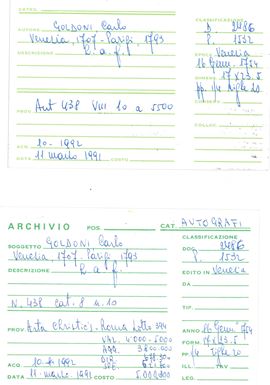 CATEG.
CLASSIFICAZIONE
AUTORE GOLDONI Carlo D. 2486
Venezia, 1707 - Parigi, 1793 P. 1532
DESCRIZIONE L. a. f. Venezia
16 Genn. 1754
17 x 23.5
pp. 1/4 righe 20
PROV. Ant 438 VIII 10 a 5500
COLLOC.
ACQ. 10-1992
DATA 11 marzo 1991 COSTO
ARCHIVIO POS. CAT. AUTOGRAFI
SOGGETTO GOLDONI Carlo CLASSIFICAZIONE
Venezia, 1707 - Parigi 1793 DOC. 2486
P. 1532
DESCRIZIONE L. a. f. EDITO IN Venezia
N. 438 cat. 8 n. 10
PROV. Asta Christie's Roma Lotto 394 ANNO 16 Genn 1754
VAL. 4.000-5.000 FORM. 17 x 23.5
AGG. 3.800.000 PP. 1/4 righe 20
ACQ. 10-1992 ILL. TAV.
DATA 11 marzo 1991 COSTO 5.000.000 LEG.